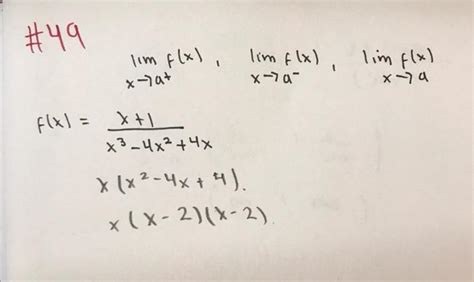 #49
lim f(x), lim f(x), lim f(x)
x→a⁺ x→a⁻ x→a
f(x) = x+1
x³-4x²+4x
x(x²-4x+4).
x(x-2)(x-2).